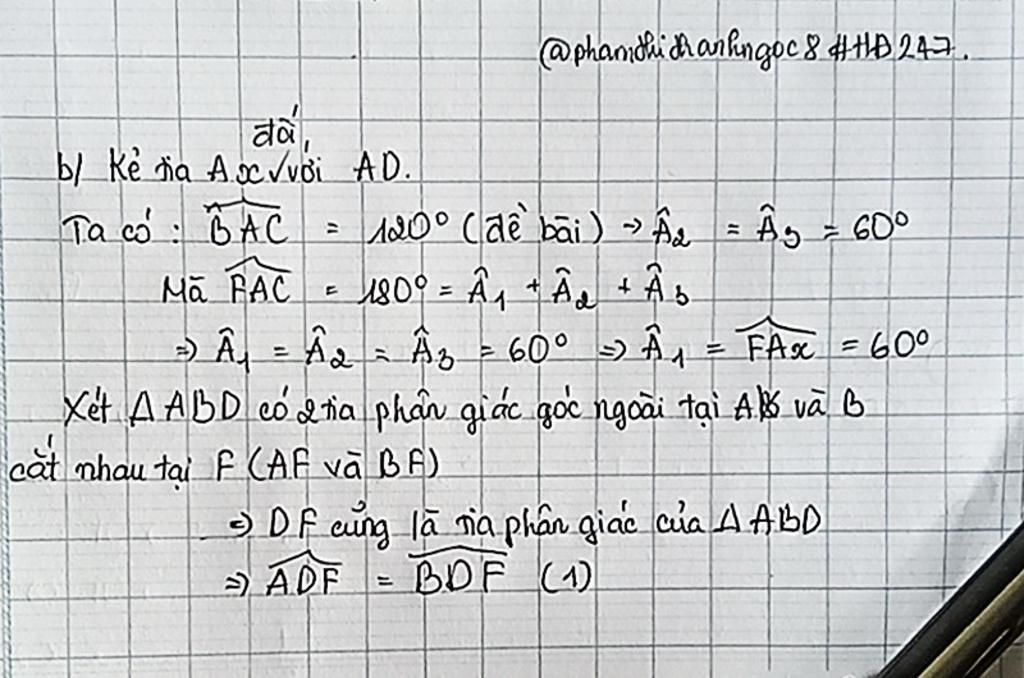 @phamthithanhngoc8 #HĐ247.
đối
b/ Kẻ tia Ax√với AD.
Ta có : BAC = 120° (đề bài) → Â2 = Â3 = 60°
Mà FAC = 180° = Â1 + Â2 + Â3
⇒ Â1 = Â2 = Â3 = 60° ⇒ Â1 = FAx = 60°
Xét ΔABD có 2 tia phân giác góc ngoài tại A và B
cắt nhau tại F (AF và BF)
⇒ DF cũng là tia phân giác của ΔABD
⇒ ADF = BDF (1)